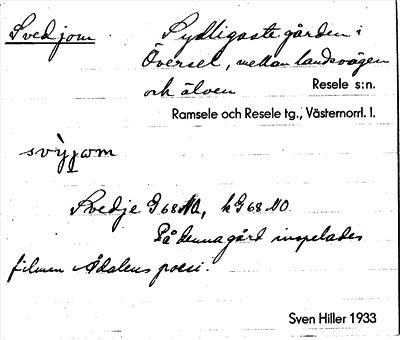 Svedjom
Sydligaste gården i
Översel, mellan landsvägen
och älven
Resele s:n.
Ramsele och Resele tg., Västernorrl. l.
Svedje G 68 NO, kG 68 NO
På denna gård inspelades
filmen Ådalens poesi.
Sven Hiller 1933